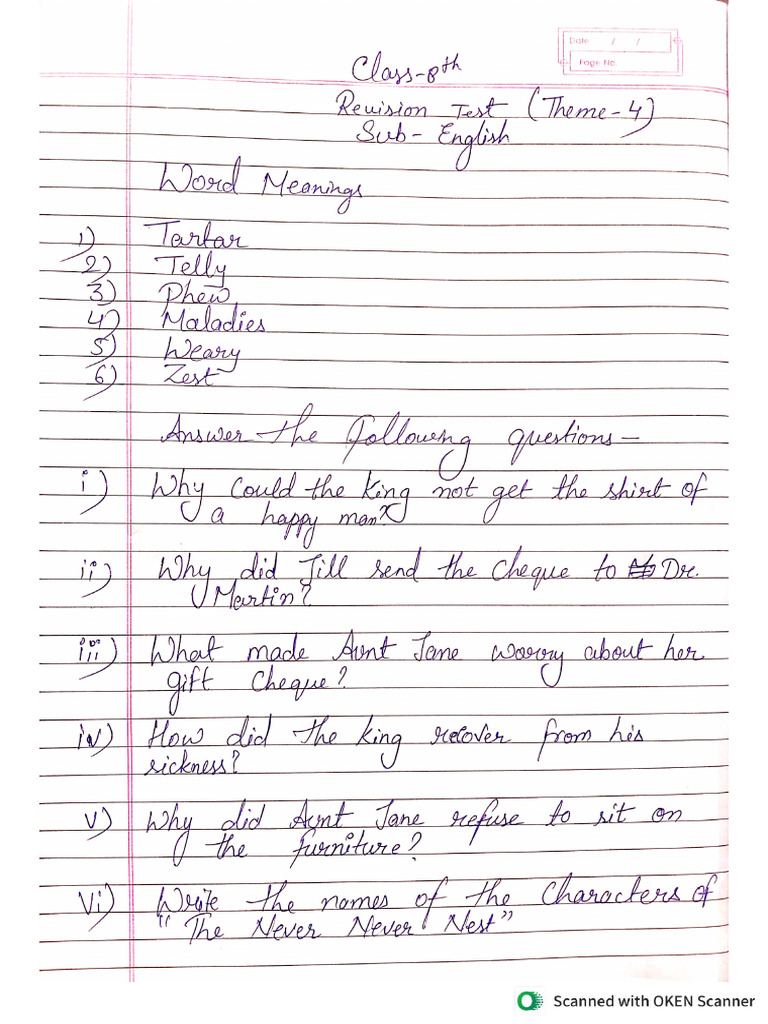 Date / /
Page No.
Class-8th
Revision Test (Theme-4)
Sub- English
Word Meanings
1) Tartar
2) Telly
3) Phew
4) Maladies
5) Weary
6) Zest
Answer the following questions-
i) Why could the king not get the shirt of
a happy man?
ii) Why did Jill send the cheque to Dr.
Martin?
iii) What made Aunt Jane worry about her
gift cheque?
iv) How did the king recover from his
sickness?
v) Why did Aunt Jane refuse to sit on
the furniture?
vi) Write the names of the characters of
"The Never Never Nest"
Scanned with OKEN Scanner